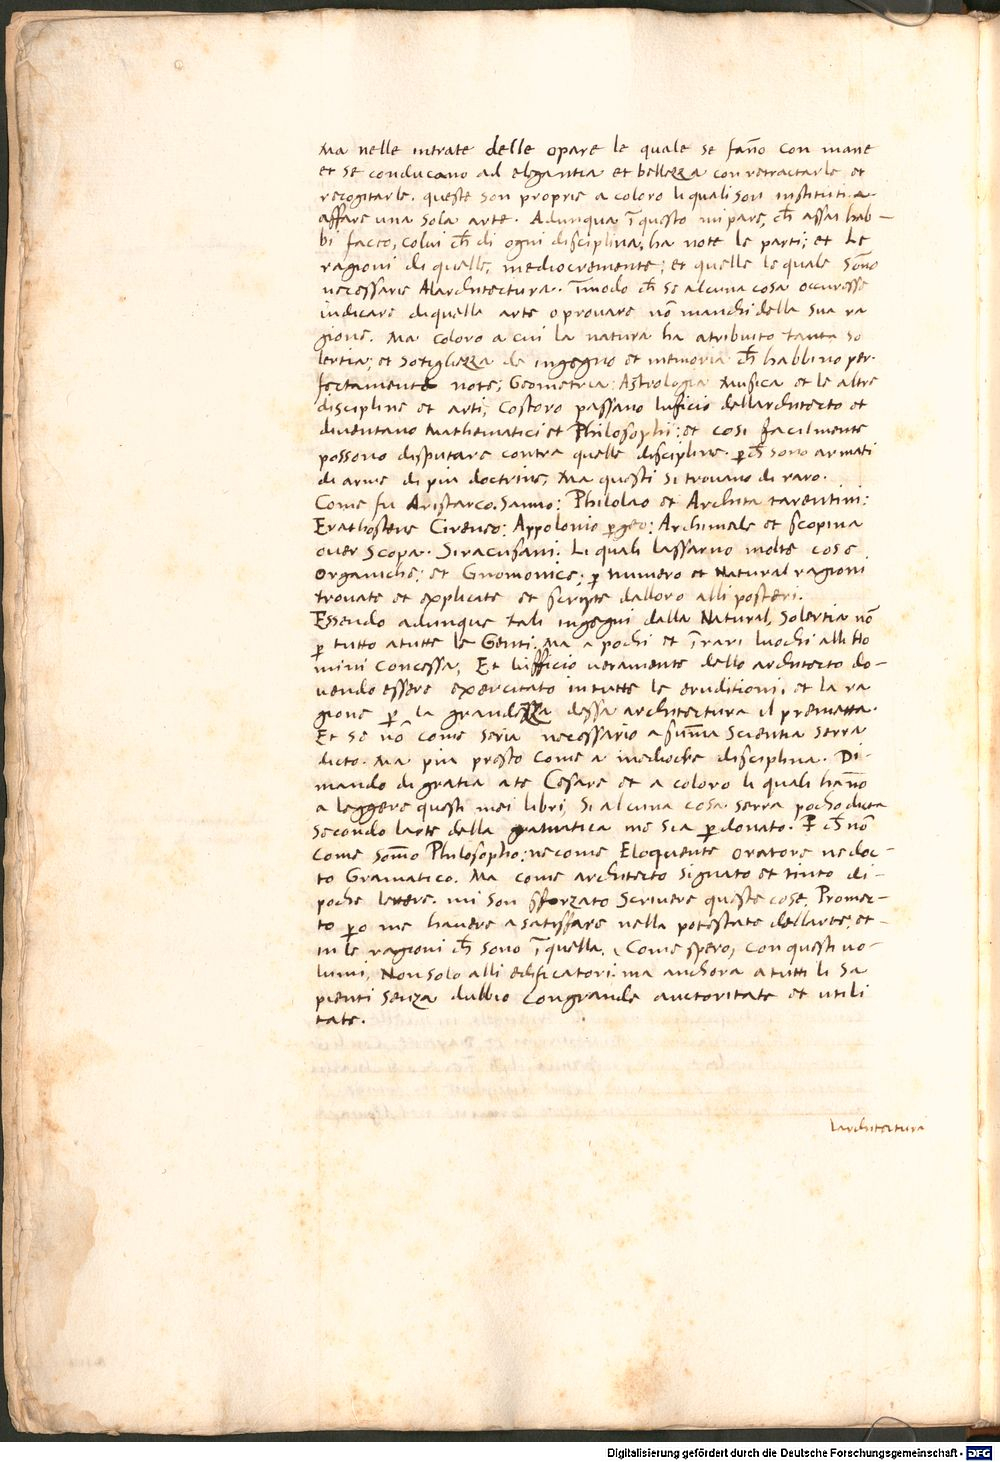 Ma nelle intrate delle opare le quale se fan̄o con mane
et se conducano ad elegantia et bellezza con retractarle et
recogitarle. queste son proprie a coloro li quali son instituti a
affare una sola arte. Adunqua ī questo mi pare, ch̄ assai hab-
bi facto, colui ch̄ di ogni disciplina, ha note le parti; et le
ragioni di quelle, mediocremente; et quelle le quale son̄o
necessarie Alarchitectura. Īmodo ch̄ se alcuna cosa occuresse
indicare di quella arte o provare nō manchi della sua ra
gione. Ma coloro a cui la natura ha atribuito tanta so
lertia; et sotigliezza de ingegno et memoria ch̄ habbino per-
fectamente note; Geometria: Astrologia Musica et le altre
discipline et arti; Costoro passano luficio dellarchitecto et
diventano Mathematici et Philosophi; et cosi facilmente
possono disputare contra quelle discipline. ꝑch̄ sono armati
di arme di piu doctrine, Ma questi si trovano di raro.
Come fu Aristarco. Samio: Philolao et Archita tarentini:
Erathostene Cireneo: Appolonio ꝑgeo: Archimele et scopina
over Scopa. Siracusani. Li quali lassarno molte cose
organiche; et Gnomonice; ꝑ numero et Natural ragioni
trovate et explicate et scripte dalloro alli posteri.
Essendo adunque tali ingegni dalla Natural, Solertia nō
ꝑ tutto a tutte le Genti. Ma a pochi et ī rari luochi alli Ho
mini concessa, Et lufficio veramente dello architecto do-
vendo essere exercitato in tutte le eruditioni, et la ra
gione ꝑ la grandezza dessa architectura il premetta.
Et se nō come seria necessario a sum̄a Scientia serra
dicto. Ma piu presto come a mediocre disciplina. Di-
mando di gratia a te Cesare et a coloro li quali han̄no
a leggere questi mei libri, Si alcuna cosa serra pocho dicta
secondo larte della gramatica me sia ꝑdonato. P̄ch̄ nō
come som̄o Philosopho: ne come Eloquente oratore ne doc-
to Gramatico. Ma come architecto signato et tinto di-
poche lettere. mi son sforzato scrivere queste cose. Promec-
to ꝑo me havere a satisfare nella potestate dellarte, et-
in le ragioni ch̄ sono ī quella. (Come spero) con questi vo-
lumi, Non solo alli edificatori: ma anchora a tutti li sa
pienti senza dubbio con grande auctoritate et utili
tate.
larchitectura
Digitalisierung gefördert durch die Deutsche Forschungsgemeinschaft - DFG